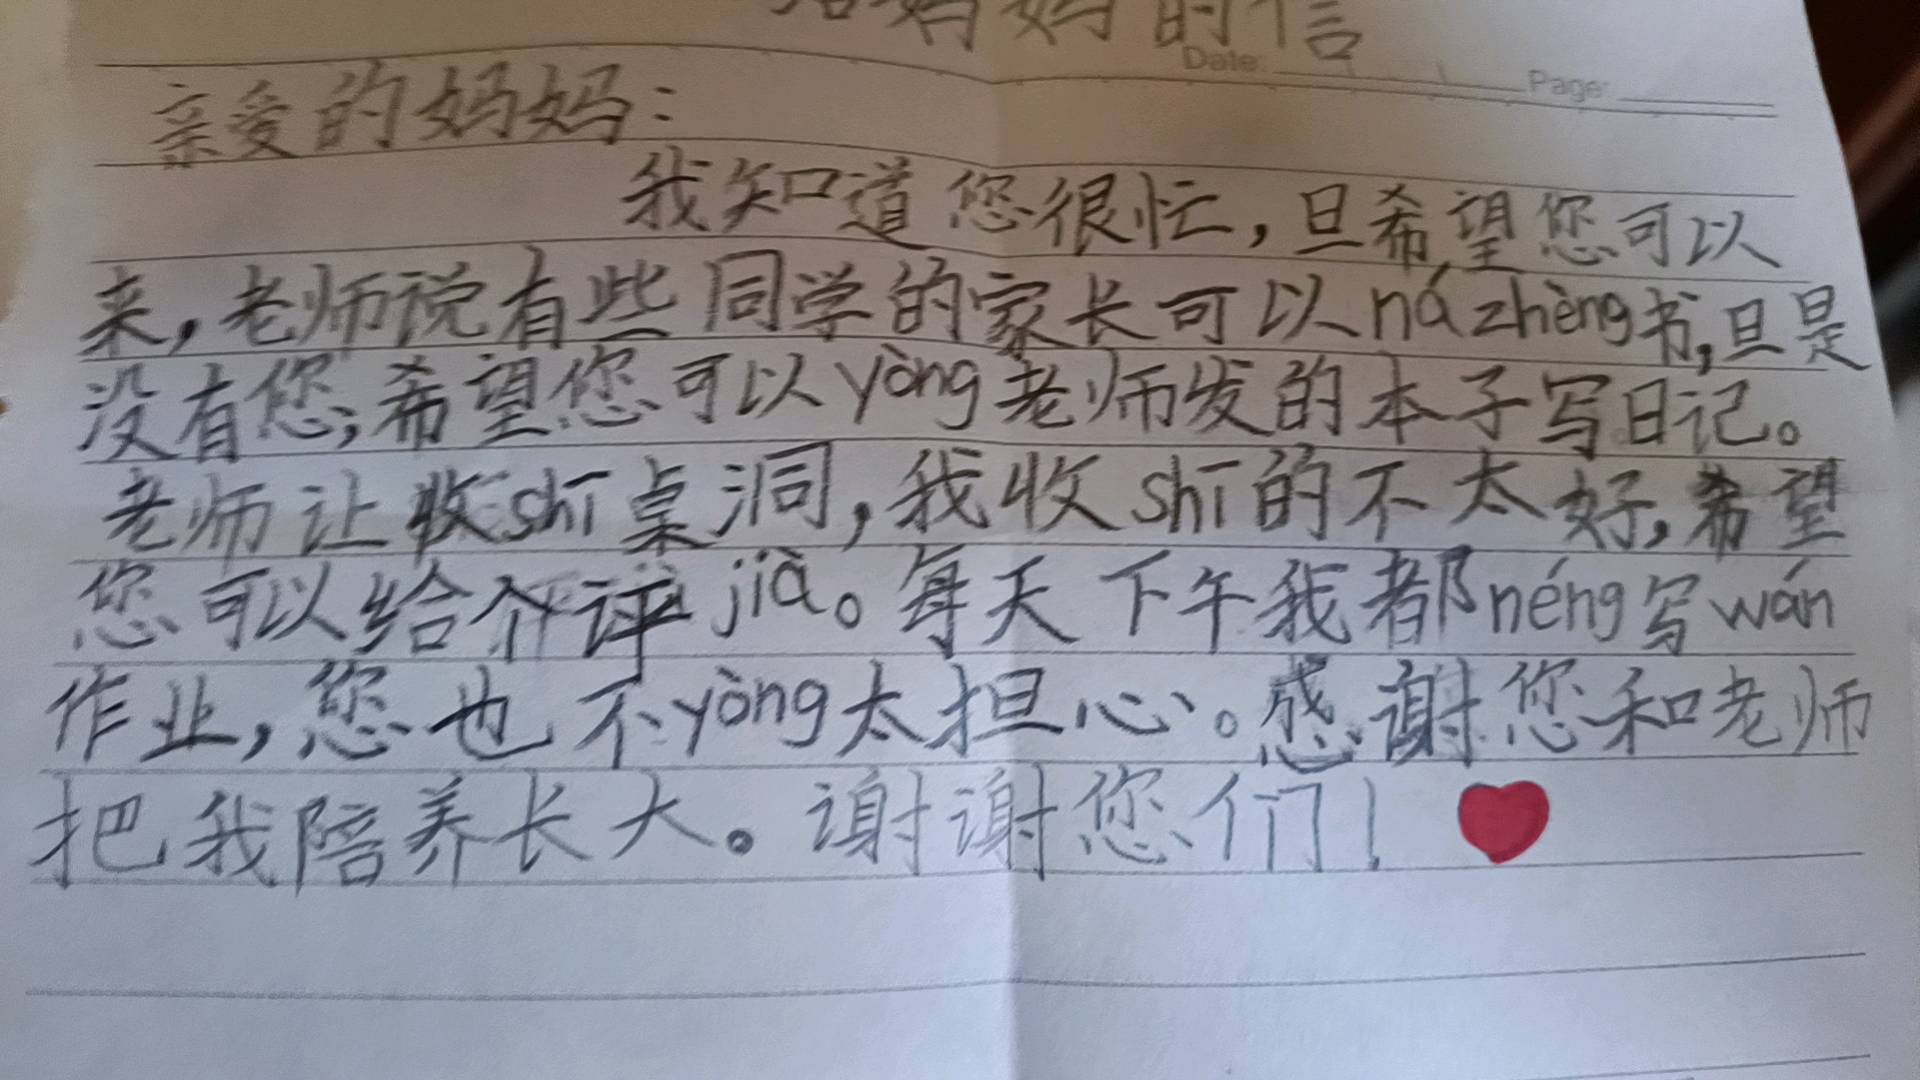 给妈妈的信
Date: Page:
亲爱的妈妈：
我知道您很忙，旦希望您可以
来，老师说有些同学的家长可以ná zhèng书，旦是
没有您，希望您可以yòng老师发的本子写日记。
老师让收shī桌洞，我收shī的不太好，希望
您可以给个评jià。每天下午我都néng写wán
作业，您也不yòng太担心。感谢您和老师
把我陪养长大。谢谢您们！